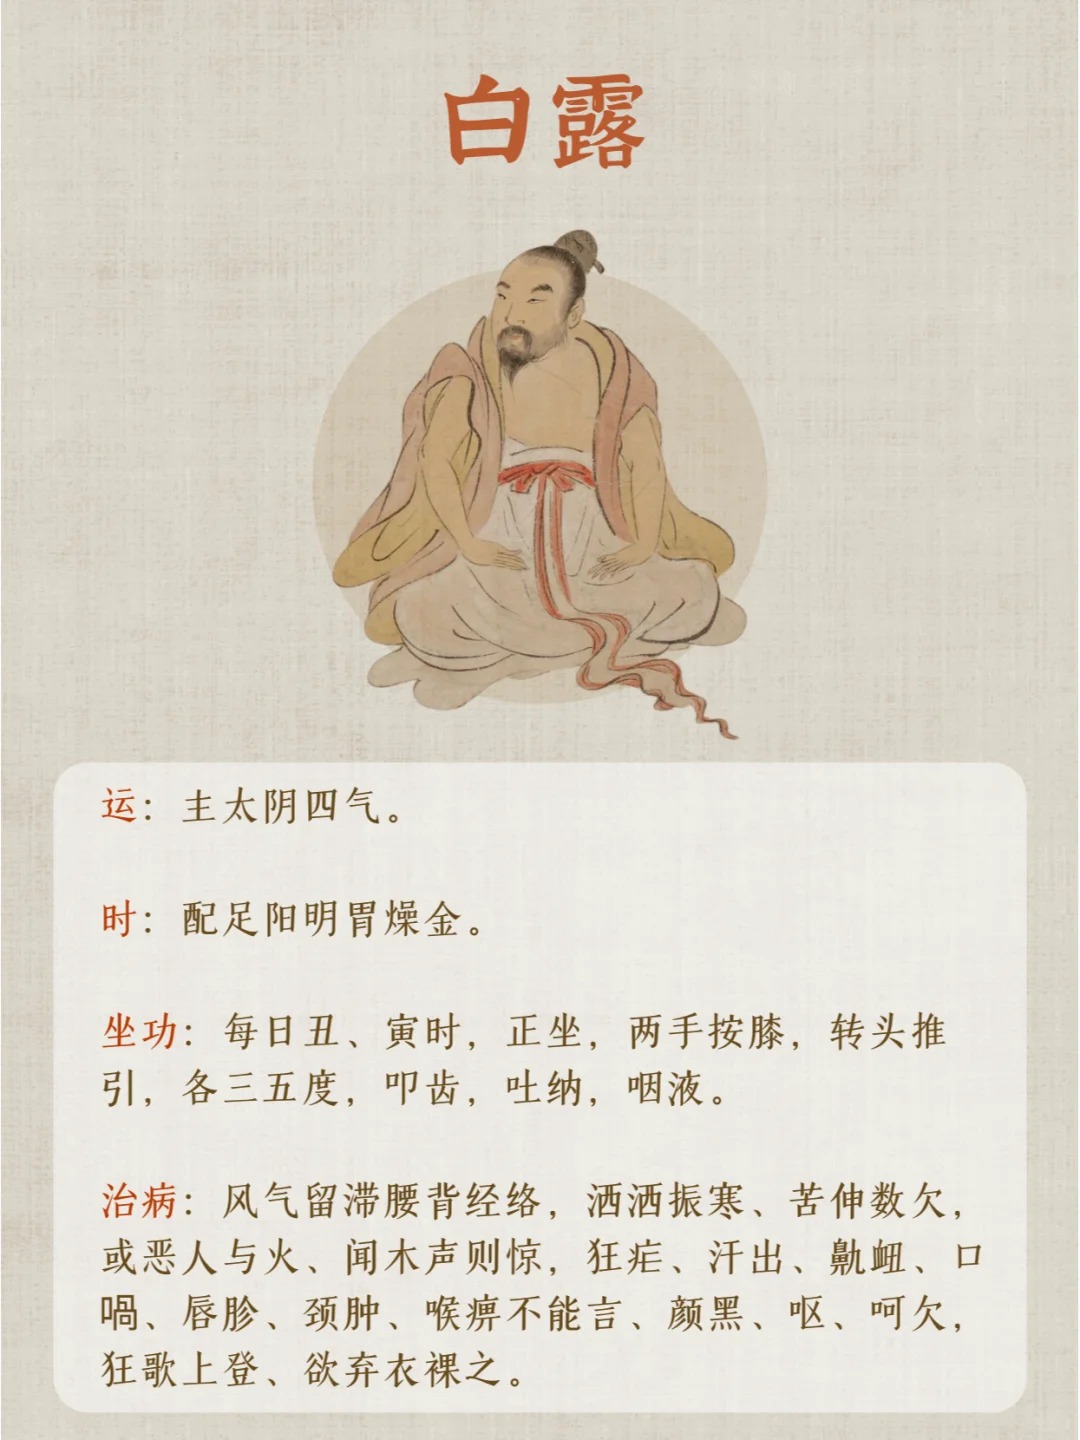 白露
运：主太阴四气。
时：配足阳明胃燥金。
坐功：每日丑、寅时，正坐，两手按膝，转头推
引，各三五度，叩齿，吐纳，咽液。
治病：风气留滞腰背经络，洒洒振寒、苦伸数欠，
或恶人与火、闻木声则惊，狂疟、汗出、鼽衄、口
喎、唇胗、颈肿、喉痹不能言、颜黑、呕、呵欠，
狂歌上登、欲弃衣裸之。